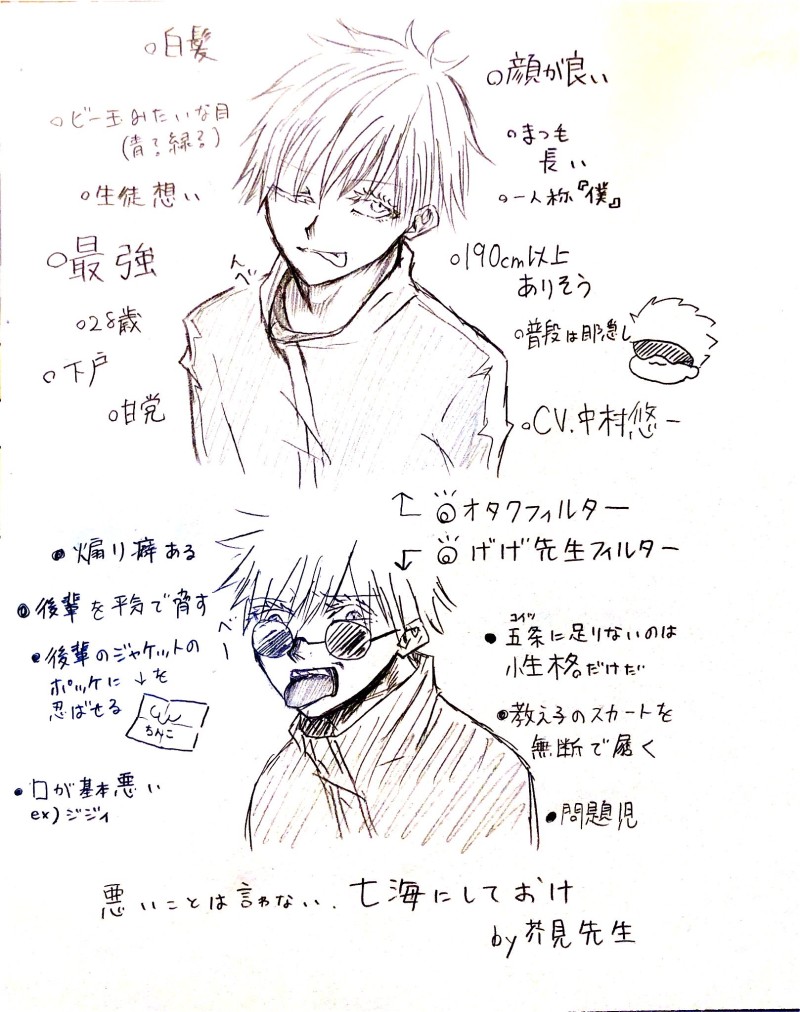 ○白髪
○ビー玉みたいな目
(青る緑る)
○生徒想い
○最強
○28歳
○下戸
○甘党
○顔が良い
○まつ毛
長い
○一人称『僕』
○190cm以上
ありそう
○普段は目隠し
○CV.中村悠一
んべ
↑オタクフィルター
↓げげ先生フィルター
●煽り癖ある
●後輩を平気で脅す
●後輩のジャケットの
ポッケに↓を
忍ばせる
ちんこ
●口が基本悪い
ex)ジジイ
べー
コイツ
●五条に足りないのは
性格だけだ
●教え子のスカートを
無断で履く
●問題児
悪いことは言わない、七海にしておけ
by芥見先生